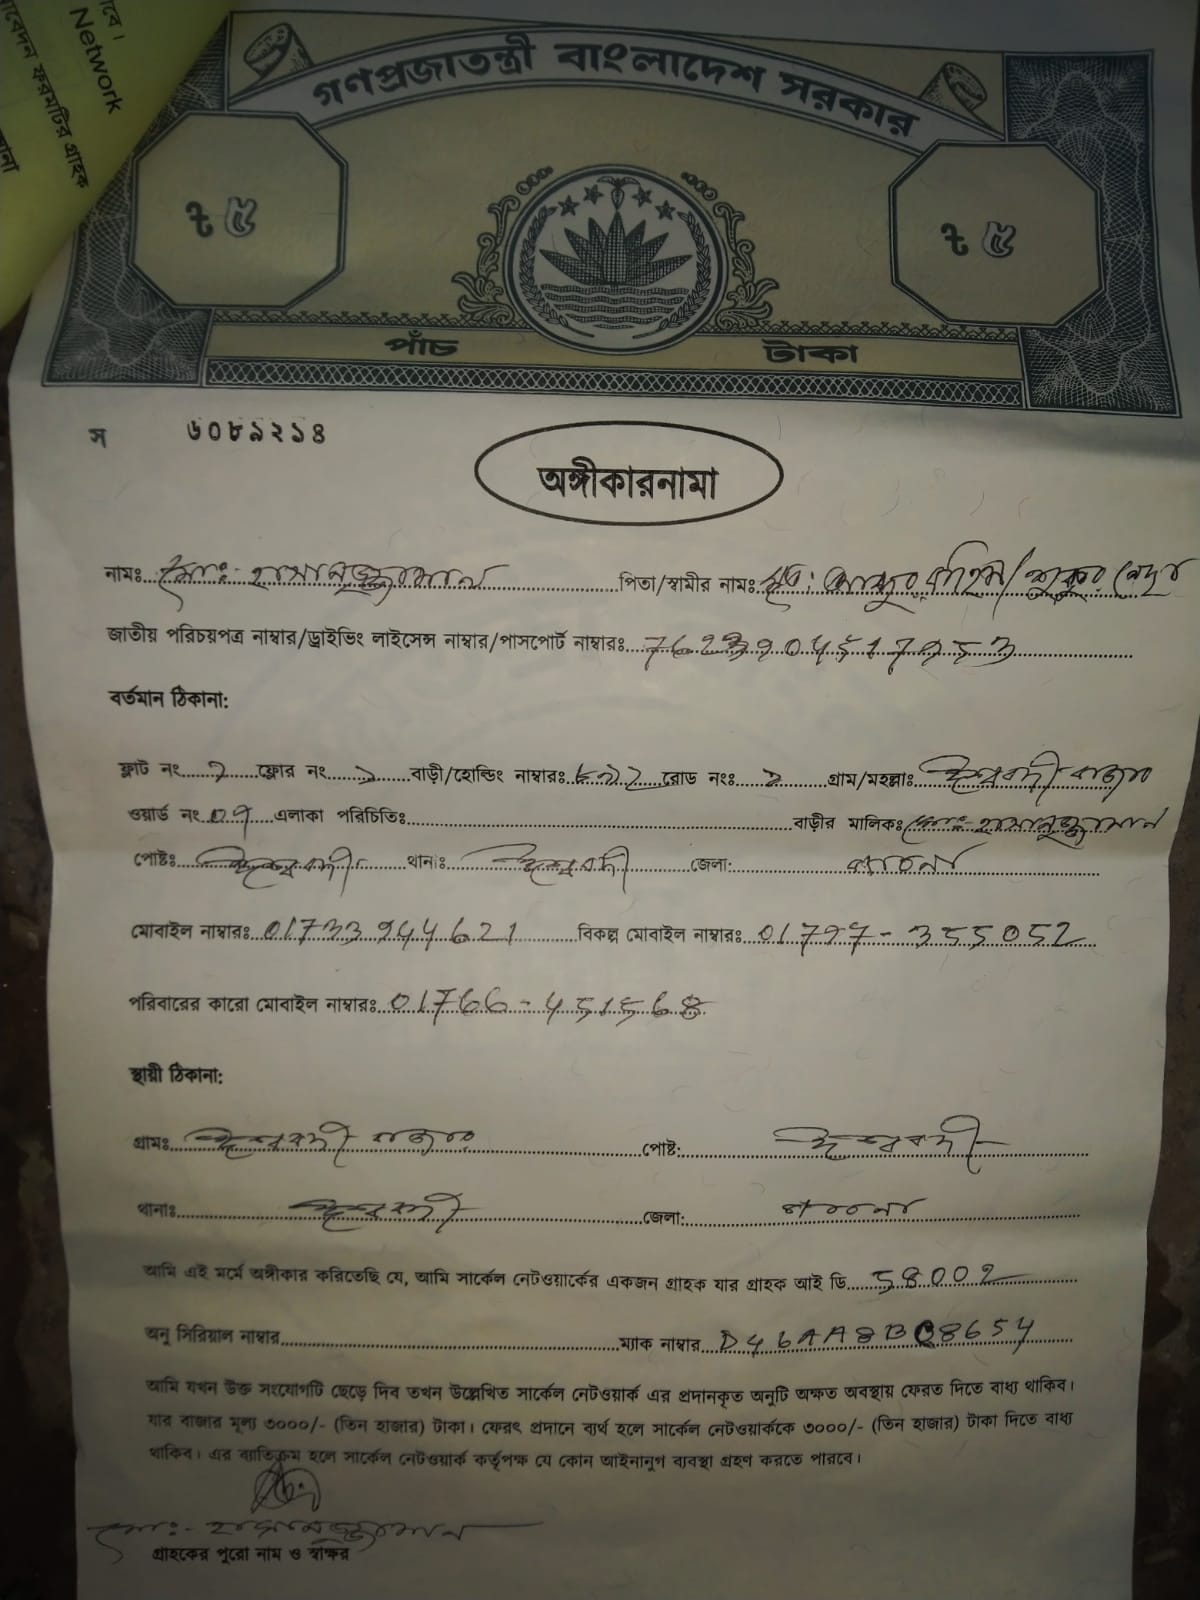 বে।
Network
বেদন ফরমটির গ্রাহক
গণপ্রজাতন্ত্রী বাংলাদেশ সরকার
৳ ৫ ৳ ৫
পাঁচ টাকা
স ৬০৮৯২১৪
অঙ্গীকারনামা
নামঃ মোঃ- হাসানুজ্জামান পিতা/স্বামীর নামঃ মৃত: আব্দুর রহিম/
জাতীয় পরিচয়পত্র নাম্বার/ড্রাইভিং লাইসেন্স নাম্বার/পাসপোর্ট নাম্বারঃ
বর্তমান ঠিকানা:
ফ্লাট নং ফ্লোর নং বাড়ী/হোল্ডিং নাম্বারঃ রোড নংঃ গ্রাম/মহল্লাঃ ঈশ্বরদী বাজার
ওয়ার্ড নং ০৭ এলাকা পরিচিতিঃ বাড়ীর মালিকঃ মোঃ- হাসানুজ্জামান
পোষ্টঃ ঈশ্বরদী থানাঃ ঈশ্বরদী জেলা: পাবনা
মোবাইল নাম্বারঃ 01733944621 বিকল্প মোবাইল নাম্বারঃ 01797-355052
পরিবারের কারো মোবাইল নাম্বারঃ 01766-451568
স্থায়ী ঠিকানা:
গ্রামঃ ঈশ্বরদী বাজার পোষ্ট: ঈশ্বরদী
থানাঃ ঈশ্বরদী জেলা: পাবনা
আমি এই মর্মে অঙ্গীকার করিতেছি যে, আমি সার্কেল নেটওয়ার্কের একজন গ্রাহক যার গ্রাহক আই ডি 58002
অনু সিরিয়াল নাম্বার ম্যাক নাম্বার D46AA8B08654
আমি যখন উক্ত সংযোগটি ছেড়ে দিব তখন উল্লেখিত সার্কেল নেটওয়ার্ক এর প্রদানকৃত অনুটি অক্ষত অবস্থায় ফেরত দিতে বাধ্য থাকিব।
যার বাজার মূল্য ৩০০০/- (তিন হাজার) টাকা। ফেরৎ প্রদানে ব্যর্থ হলে সার্কেল নেটওয়ার্ককে ৩০০০/- (তিন হাজার) টাকা দিতে বাধ্য
থাকিব। এর ব্যতিক্রম হলে সার্কেল নেটওয়ার্ক কর্তৃপক্ষ যে কোন আইনানুগ ব্যবস্থা গ্রহণ করতে পারবে।
মোঃ- হাসানুজ্জামান
গ্রাহকের পুরো নাম ও স্বাক্ষর